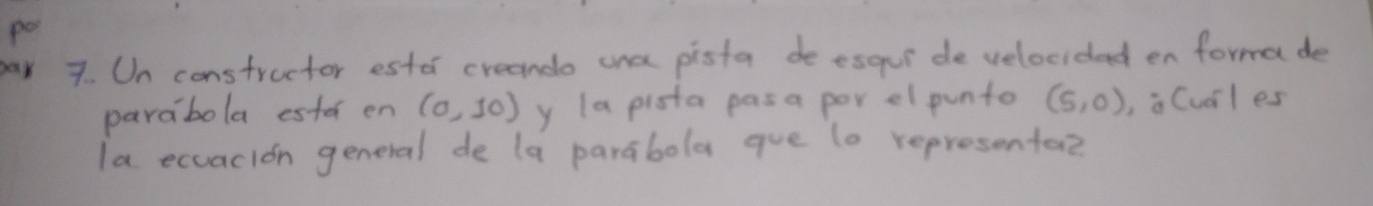 po
par 7. Un constructor está creando una pista de esquí de velocidad en forma de
parábola está en (0,10) y la pista pasa por el punto (5,0), ¿Cuál es
la ecuación general de la parábola que lo representa?